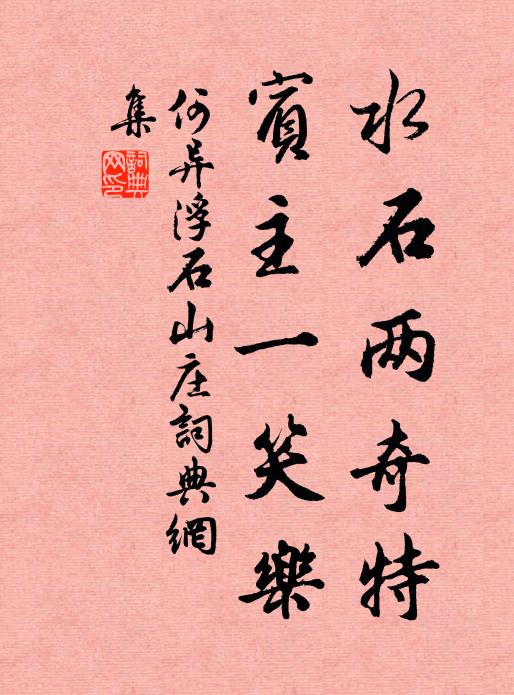 水石两奇特
賓主一笑樂
何异浮石山庄詞典網
集
詞典網印